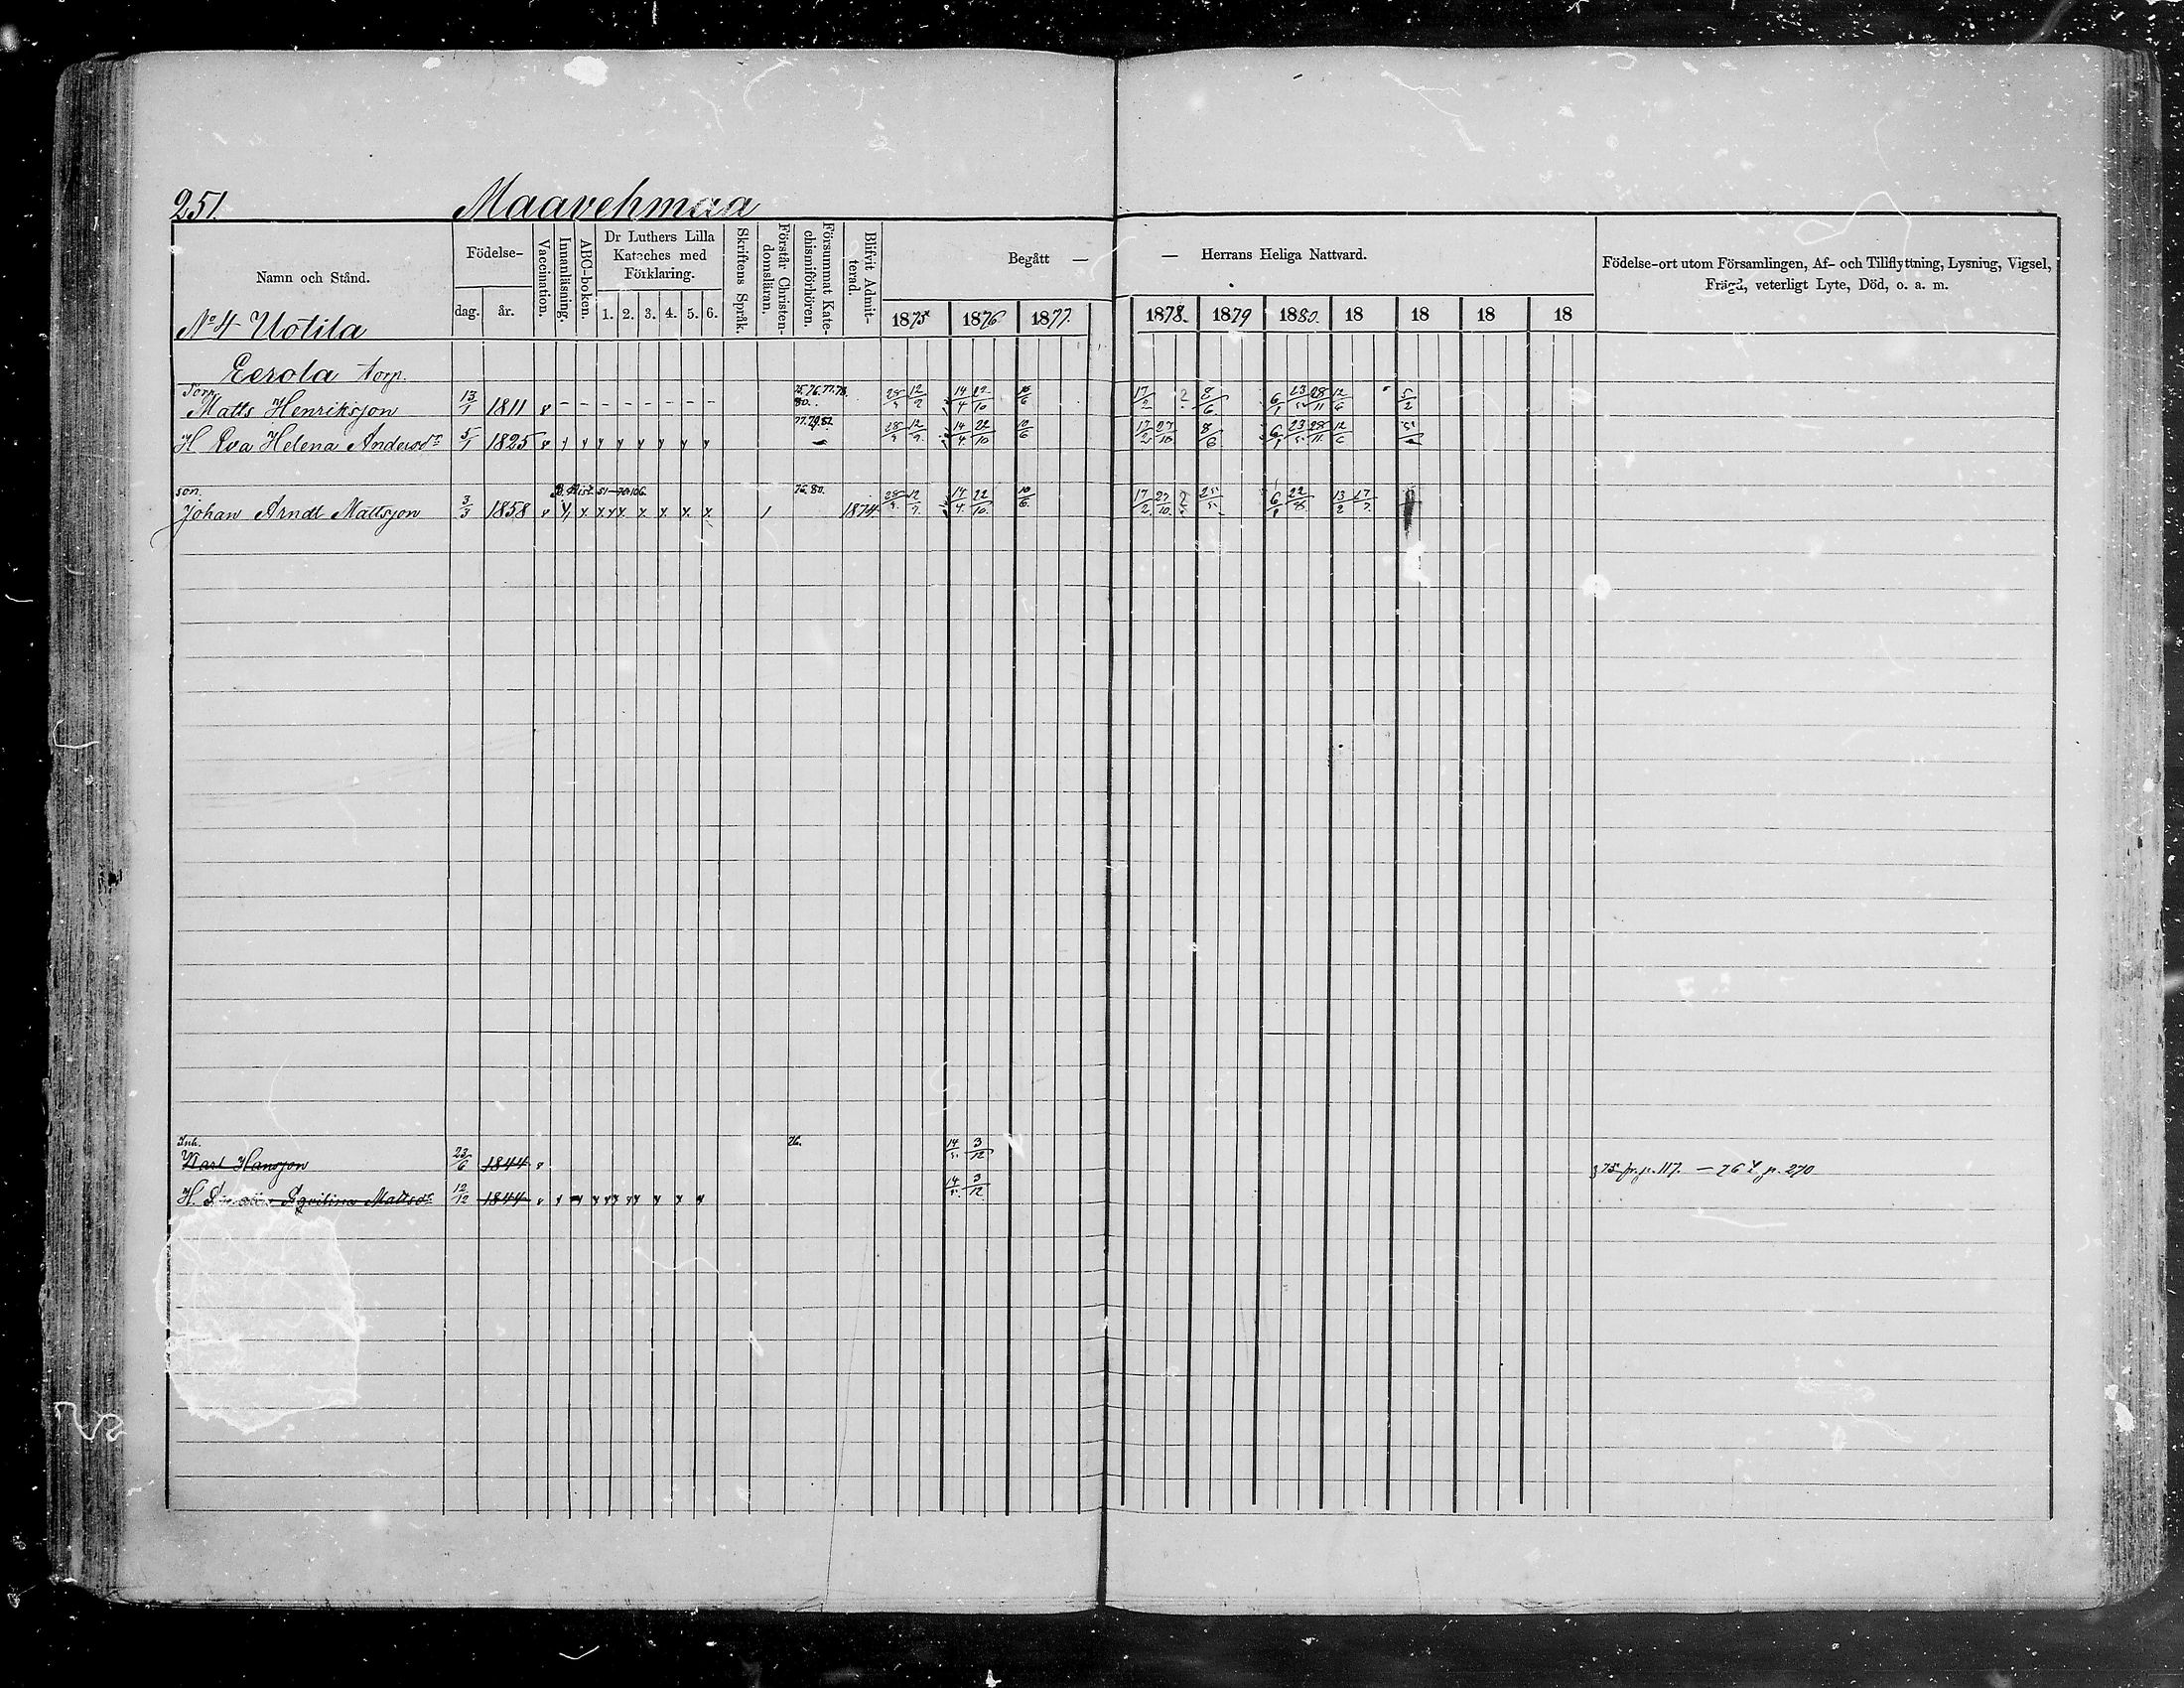 251. Maavehmaa
Namn och Stånd. Födelse- Vaccination. Innanläsning. ABC-boken. Dr Luthers Lilla Kateches med Förklaring. Skriftens Språk. Förstår Christendomsläran. Försummat Katechismiförhören. Blifvit Admitterad. Begått — — Herrans Heliga Nattvard. Födelse-ort utom Församlingen, Af- och Tillflyttning, Lysning, Vigsel, Frägd, veterligt Lyte, Död, o. a. m.
dag. år. 1. 2. 3. 4. 5. 6. 1875 1876 1877. 1878. 1879 1880. 18 18 18 18
No 4 Uotila
Eerola torp.
Torp. 75.76.77.78.
Matts Henriksson 13/1 1811 80. 12/9 14/4 22/10 17/2 8/6 6/1 23/5 28/11 12/6 5/2
H. Eva Helena Andersdr 5/1 1825 28/9 12/9 14/4 22/10 10/6 17/2 27/10 8/6 6/1 23/5 28/11 12/6
son. 76.80.
Johan Arndt Mattsson 3/3 1858 1 1874 12/9 14/4 22/10 10/6 17/2 27/10 25/5 6/1 22/8 13/2 17/7
Inh. 76.
Karl Hansson 23/6 1844 14/5 3/12 75 fr. p. 117. — 76 t. p. 270
H. Mattsdr 12/12 1844 14/5 3/12